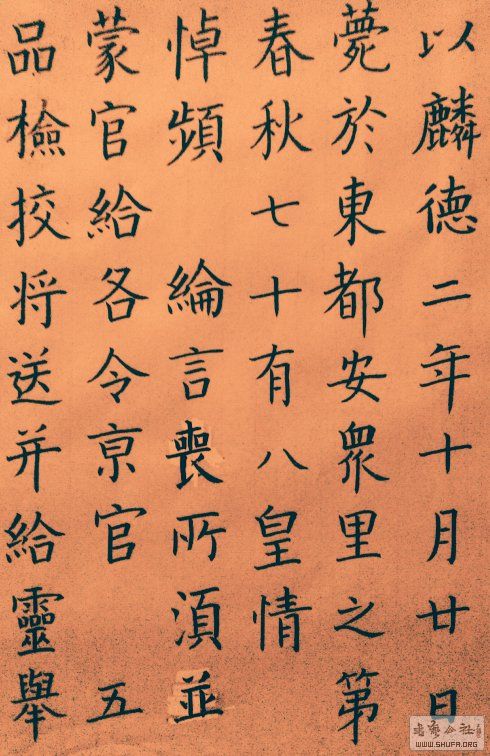 以麟德二年十月廿日
薨於東都安衆里之第
春秋七十有八皇情
悼頻 綸言喪所湏並
蒙官給各令亰官 五
品檢挍将送并給靈舉
WWW.SHUFA.ORG